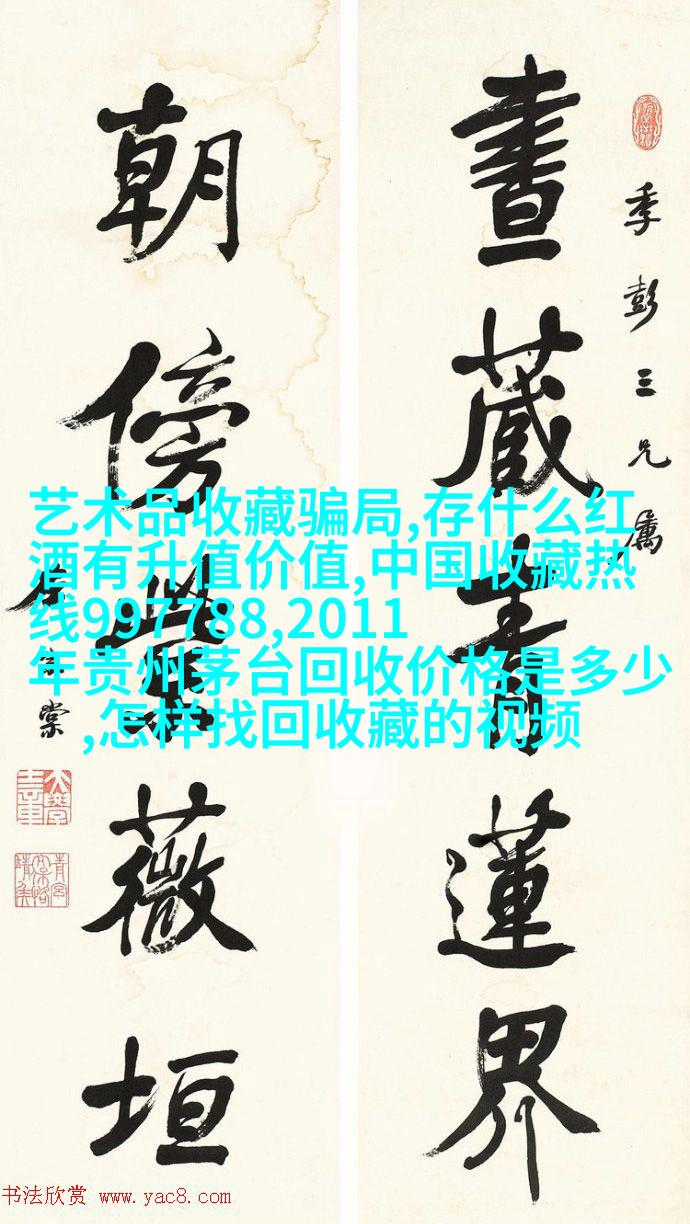 晝藏青蓮界
季彭三兄屬
朝傍紫薇垣
左宗棠
艺术品收藏骗局,存什么红
酒有升值价值,中国收藏热
线997788,2011
年贵州茅台回收价格是多少
,怎样找回收藏的视频
书法欣赏 www.yac8.com